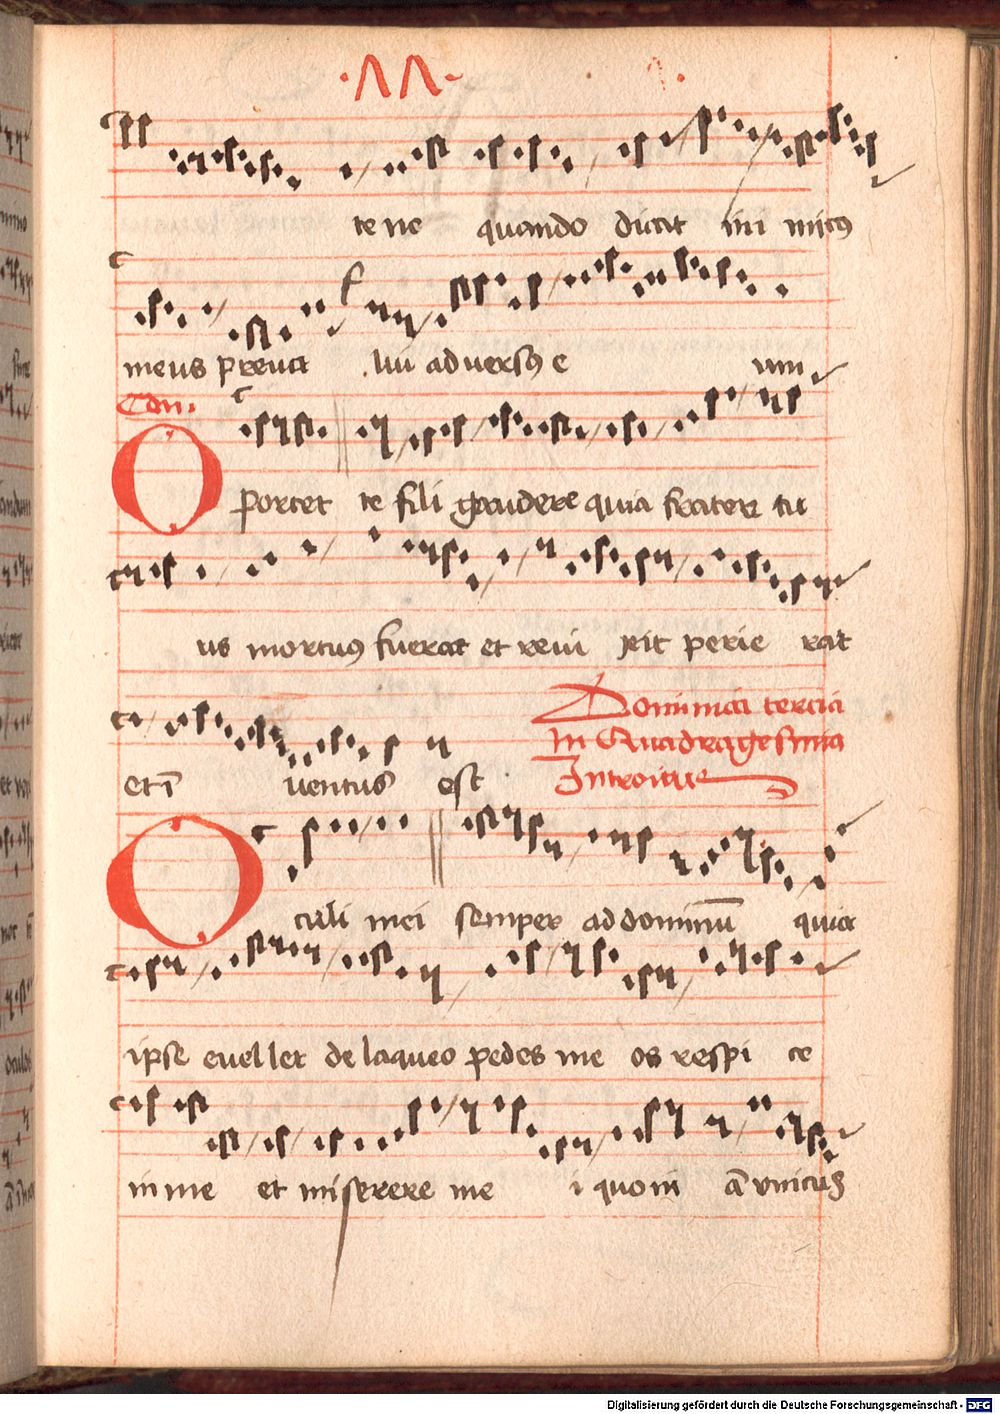 te ne quando dicat ini micus
meus preua lui aduersus e um
Com.
Oportet te fili gaudere quia frater tu
us mortuus fuerat et reui xit perie rat
et i uentus est
Dominica tercia
In Quadragesima
Introitus
Oculi mei semper ad dominu quia
ipse euellet de laqueo pedes me os respi ce
in me et miserere me i quoni a vnicus
Digitalisierung gefördert durch die Deutsche Forschungsgemeinschaft - DFG